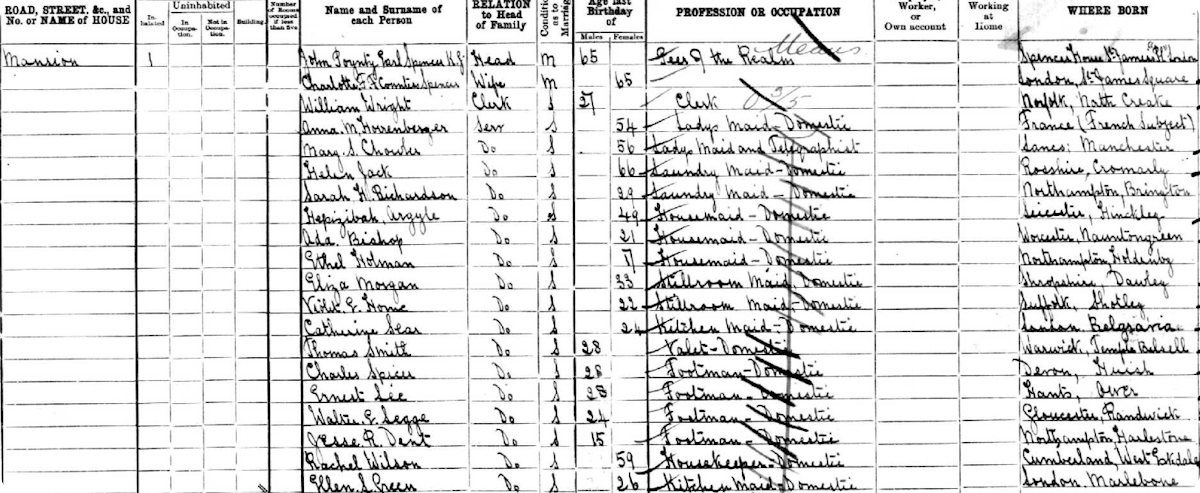 ROAD, STREET, &c., and No. or NAME of HOUSE In-habited Uninhabited In Occupa-tion. Not in Occupa-tion. Building. Number of Rooms occupied if less than five Name and Surname of each Person RELATION to Head of Family Condition as to Marriage Age last Birthday of Males Females PROFESSION OR OCCUPATION Worker, or Own account Working at Home WHERE BORN
Mansion 1 John Poyntz Earl Spencer K.G. Head M 65 Peer of the Realm Spencer House St James Pl London
Charlotte F. F. Countess Spencer Wife M 65 London, St James Square
William Wright Clerk S 27 Clerk Norfolk, North Creake
Anna M. Serv S 54 Ladys Maid-Domestic France (French Subject)
Mary S. Do S 56 Ladys Maid and Telegraphist Lancs: Manchester
Helen Jack Do S 66 Laundry Maid-Domestic Rosshire, Cromarty
Sarah H. Richardson Do S 29 Laundry Maid-Domestic Northampton, Brington
Hepizibah Argyle Do S 49 Housemaid-Domestic Leicester, Hinckley
Ada Bishop Do S 21 Housemaid-Domestic Worcester, Nauntongreen
Ethel Holman Do S 17 Housemaid-Domestic Northampton, Holdenby
Eliza Morgan Do S 33 Stillroom Maid, Domestic Shropshire, Dawley
Violet E. Howe Do S 22 Stillroom Maid-Domestic Suffolk, Shotley
Catherine Sear Do S 24 Kitchen Maid-Domestic London, Belgravia
Thomas Smith Do S 28 Valet-Domestic Warwick, Temple Balsall
Charles Spicer Do S 28 Footman-Domestic Devon, Huish
Ernest Lee Do S 28 Footman-Domestic Hants, Ower
Walter E. Legge Do S 24 Footman-Domestic Gloucester, Randwick
Jesse R. Dent Do S 15 Footman-Domestic Northampton, Harlestone
Rachel Wilson Do S 59 Housekeeper-Domestic Cumberland, West Eskdale
Ellen S. Green Do S 26 Kitchen Maid-Domestic London Marlebone